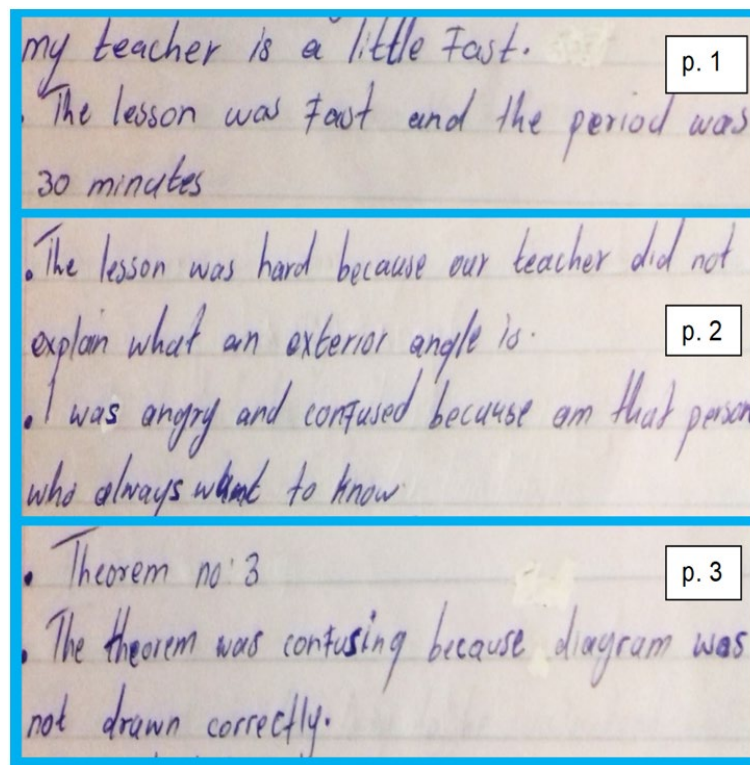 my teacher is a little Fast.
p. 1
. The lesson was Fast and the period was
30 minutes
. The lesson was hard because our teacher did not
explain what an exterior angle is.
p. 2
. I was angry and confused because am that person
who always want to know
. Theorem no: 3
p. 3
. The theorem was confusing because diagram was
not drawn correctly.